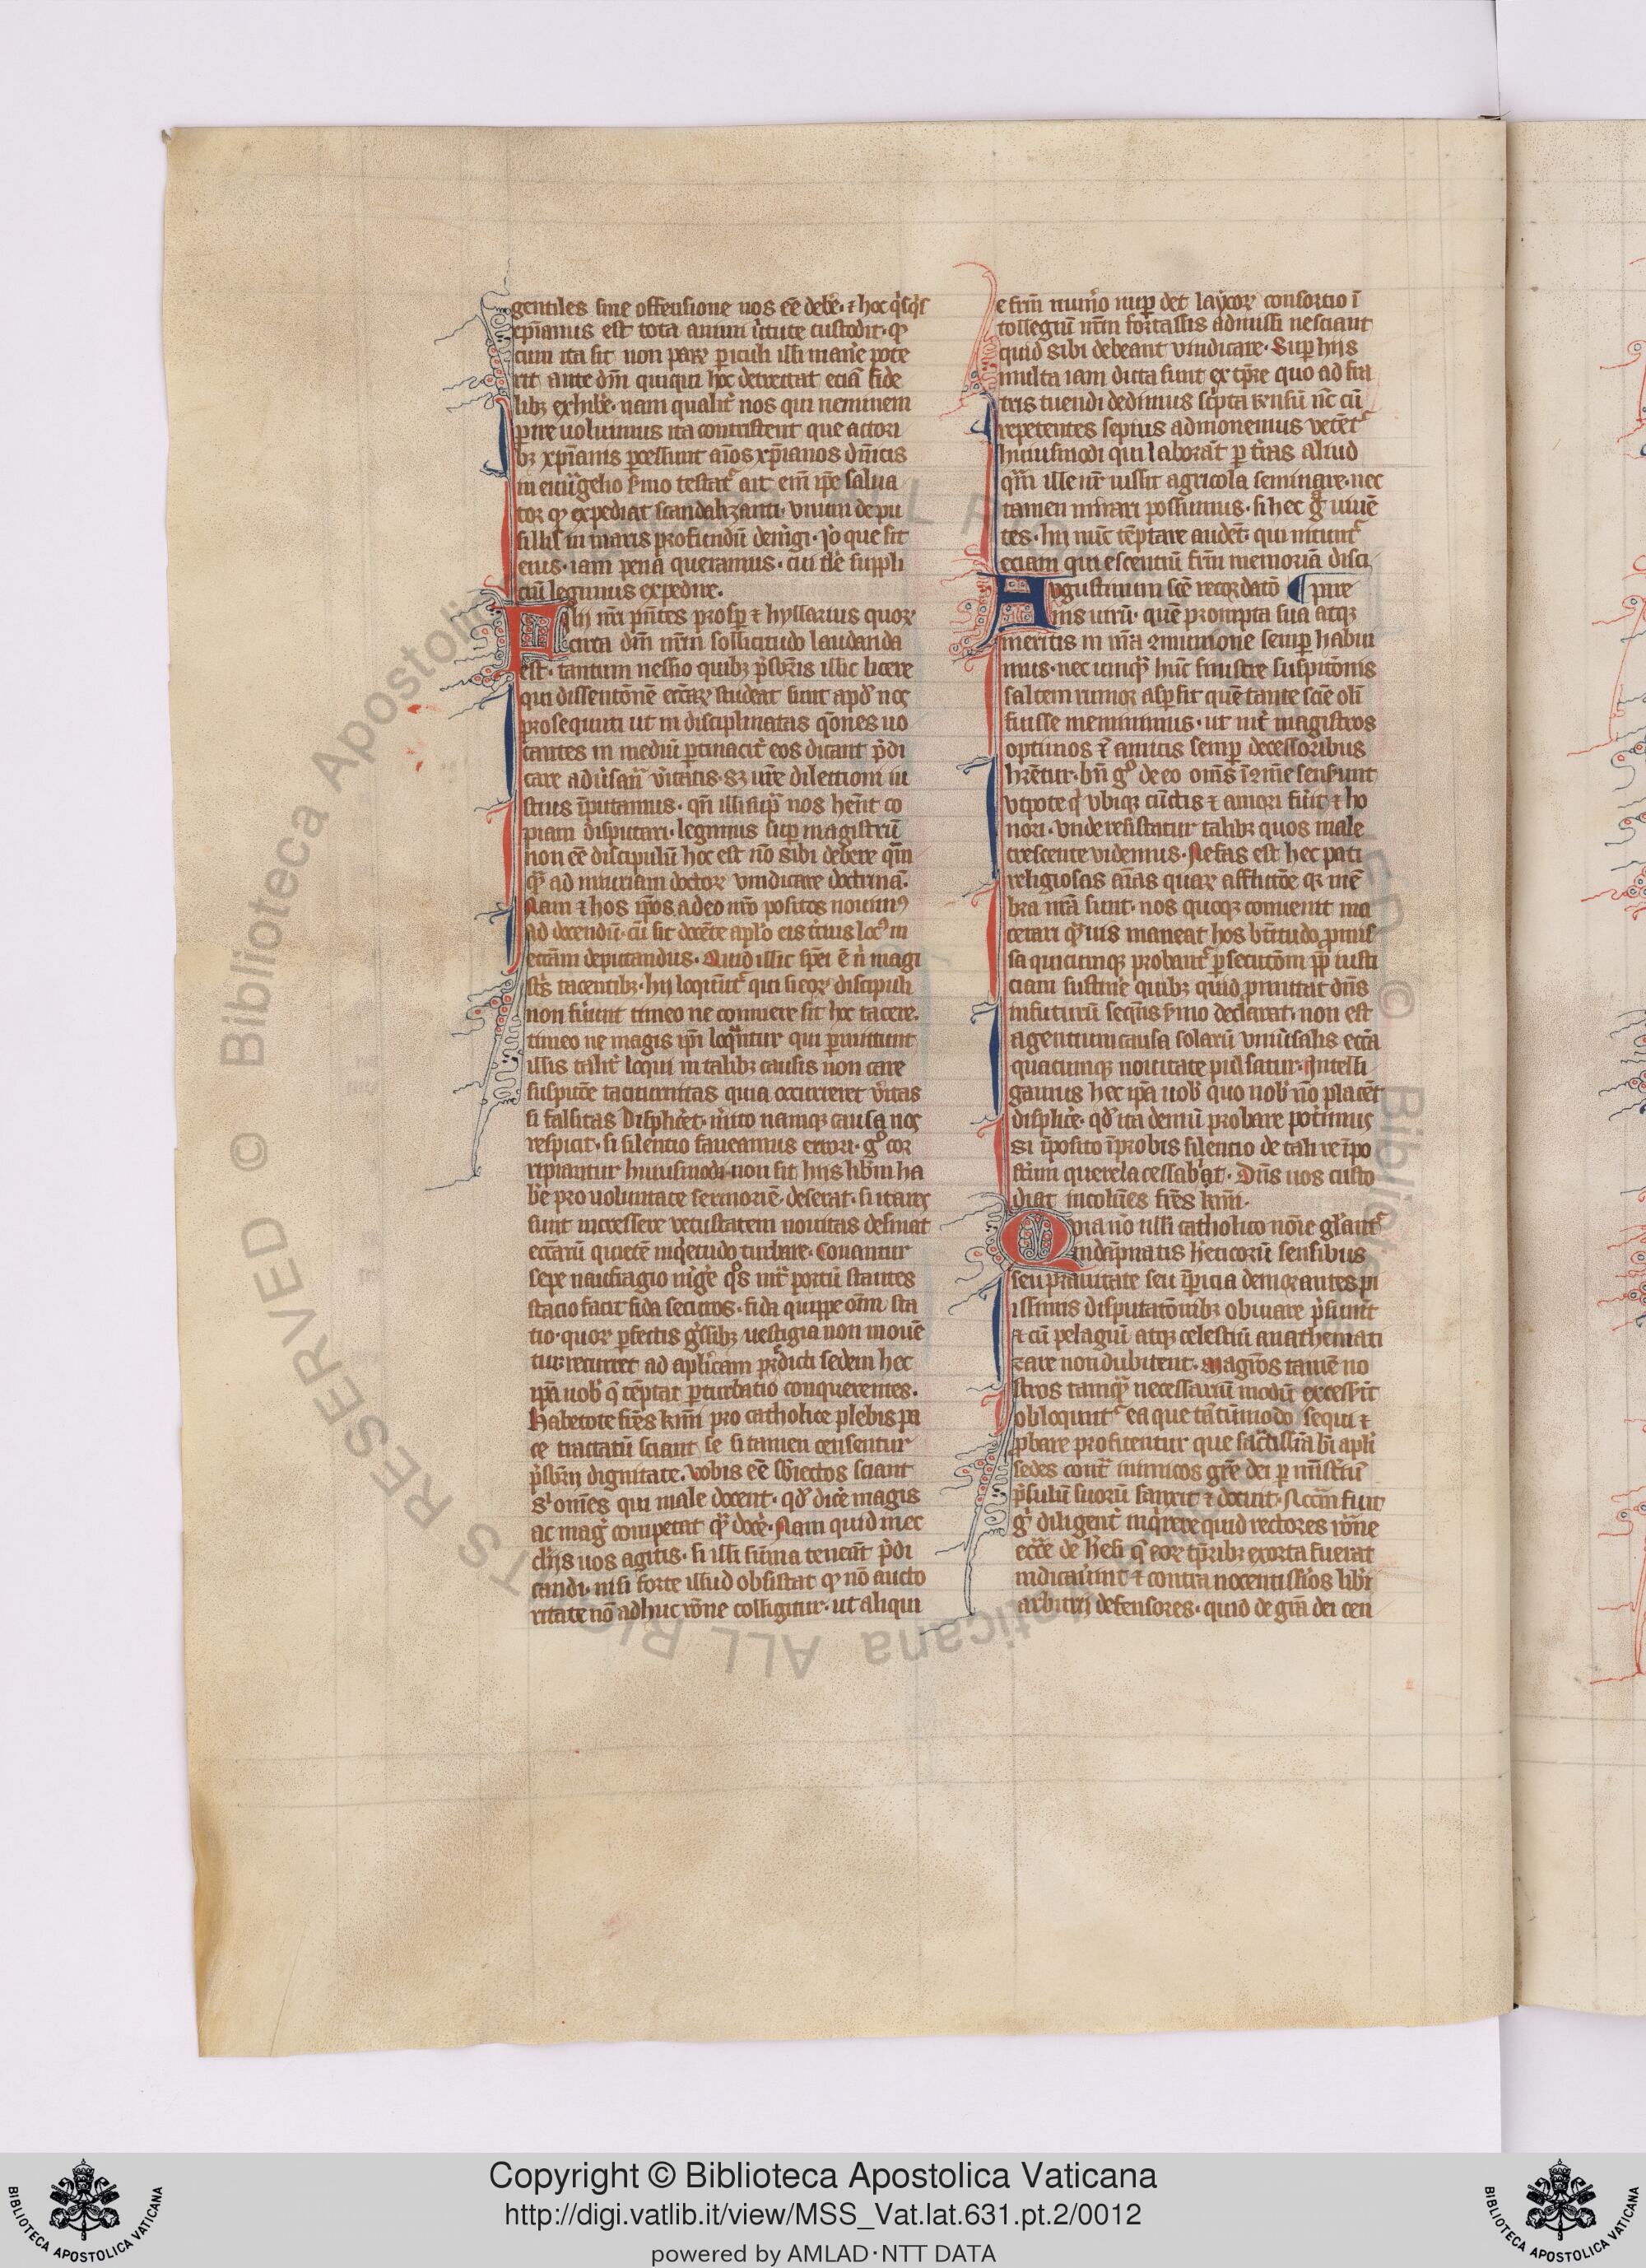 gentiles sine offensione nos eē debe᷑· ⁊ hoc q̇sq̇s
xp̄ianus est tota animi ũtute custodit· ꝙ
cum ita sit non paꝝ ꝑiculi illi mane᷑ pote
rit ante dm̄ quiqui hoc detrectat eciā fide
libꝫ exhibe᷑· nam qualit᷑ nos qui neminem
ꝑire uolumus ita contristent que actori
bꝫ xp̄ianis ꝑcellunt aīos xp̄ianos dn̄icis
in euu̾gelio s̾mo testat᷑ ait em̄ ip̄e salua
tor ꝙ expediat scandalizanti· vnum de pu
sillis in maris profundū dem̾gi· Jō que sit
eius· iam pena queramus· cui tl̾e suppli
ciū legimus expedire.
Filij nr̄i pn̄tes prosꝑ ⁊ hyllarius quoꝝ
circa dm̄ nr̄m sollicitudo laudanda
est· tantum nescio quibꝫ p̄sbr̄is illic licere
qui dissentōnē ecc̄aꝝ studeāt sunt apd̾ nos
prosequuti ut in disciplinatas q̄ones uo
cantes in mediū ꝑtinacit᷑ eos dicant p̄di
care adu̾san̄ u̾itatis· sꝫ ur̄e dilectioni iu
stius īputamus· qn̄ illi sup̄ nos hēnt co
piam disputari· legimus suꝑ magistrū
non eē discipulū hoc est nō sibi debere qm̄
q̄ꝫ ad iniuriam doctoꝝ vindicare doctrinā·
Nam ⁊ hos ip̄os adeo nr̄o positos nouim᷒
ad docendū· cū sit docēte apl̾o eis t̾cius loc᷒ in
ecc̄am deputandus· Quid illic sp̄ei ē ñ magi
str̄s tacentibꝫ· hij loqūnt᷑ qui si eoꝝ discipuli
non fu̾unt timeo ne conniuere sit hoc tacere·
timeo ne magis ip̄i loquntur qui ꝑmittunt
illis talit᷑ loqui in talibꝫ causis non care
suspitōe taciturnitas quia occurreret u̾itas
si falsitas displic̾et· m̾ito namqꝫ causa nos
respicit· si silentio faueamus errori· g° cor
ripiantur huiusmodi non sit hijs lib̾m ha
be᷑ pro uoluntate sermonē· desinat· si ita res
sunt incessere vetustatem nouitas desinat
ecc̄arū quietē inq̇etudo turbare· Conantur
sepe naufragio m̾ge᷑ q°s int᷑ portū stantes
stacio facit fida securos· fida quippe om̄i sta
tio· quoꝝ ꝑfectis g̾ssibꝫ uestigia non mouē
tur recurret ad apl̾icam pr̄dicti sedem hec
ip̄a uob̾ q̄ tēptat ꝑturbatio conquerentes·
Habetote fr̄es km̄i pro catholice plebis pa
ce tractatū sciant se si tamen censentur
p̄sbr̄ij dignitate· vobis eē sb̾iectos sciant
s̾ omēs qui male docent· qd̾ dice᷑ magis
ac mag̾ competat q̄ꝫ doce᷑· Nam quid in ec
cl̾ijs uos agitis· si illi sūma tenēnt p̄di
candi· nisi forte illud obsistat ꝙ nō aucto
ritate nō adhuc rōne colligitur· ut aliqui
e fr̄m num̾o nuꝑ det laycoꝝ consortio ī
collegiū nr̄m fortassis admissi nesciant
quid sibi debeant vindicare· Suꝑ hijs
multa iam dicta sunt ex tp̄re quo ad fra
tris tuendi dedimus sc̾pta rensū nc̄ cū
repetentes sepius admonemus vetēt᷑
huiusmodi qui laborāt ꝑ t̾ras aliud
qm̄ ille nr̄ iussit agricola seminare· nec
tamen mirari possumus· si hec g̾ uiuē
tes· hij nūc tēptare audēt· qui nitunt᷑
eciam quiescentiū fr̄m memoriā disci
Augustinum scē recordatō ¶ pare
ms uirū· quē prompta sua atqꝫ
meritis in nr̄a ꝯmunione semꝑ habui
mus· nec umq̄ꝫ hūc sinistre suspitōnis
saltem rumor asp̄sit quē tante scīe olī
fuisse meminimus· ut int᷑ magistros
optimos ⁊ amicis semꝑ decessoribus
hr̄etur· bn̄ g° de eo om̄s ī ꝯmūe sensunt
vtpote q̇ vbiqꝫ cūctis ⁊ amori fu̾it ⁊ ho
nori· vnde resistatur talibꝫ quos male
crescente videmus· Nefas est hec pati
religiosas aīas quaꝝ afflictōe qꝛ mē
bra nr̄a sunt· nos quoqꝫ conuenit ma
cerari q̄ꝫuis maneat hos btītudo promis
sa quicumqꝫ probant᷑ ꝑsecutōm ꝓp̄ iusti
ciam sustine᷑ quibꝫ quid promittat dn̄s
in futurū seqn̄s s̾mo declarat· non est
agentium causa solarū vniu̾salis ecc̄a
quacumqꝫ nouitate pulsatur· Intelli
gamus hec ip̄a uob̾ quo nob̾ nō placēt
displice᷑· qd̾ ita demū probare potimus
si īposito īprobis silentio de tali re īpo
st̾um querela cessabāt· Dn̄s uos custo
diat incolūes fr̄es km̄i·
Quia nō ulli catholico nōīe gl̾iant᷑
indāpnatis h̾eticorū sensibus
seu prauitate seu īpericia demorantes pi
issimis disputatōnibꝫ obuiare p̄sum̄t
⁊ cū pelagiū atqꝫ celestiū anathemati
zare non dubitent· magr̄os tamē no
stros tamq̄ꝫ necessariū modū excess̾int
obloqunt᷑ ea que tātūmodo sequi ⁊
ꝓbare profitentur que sāctissīa bt̄i apl̾i
sedes cont᷑ inimicos gr̄e dei ꝑ mīst̾iū
p̄sulū suorū sanxit ⁊ docuit· Nccīm fuit
g̾ diligent᷑ inq̇rere quid rectores rōīne
ecc̄e de h̾esi q̄ eoꝝ tp̄ribꝫ exorta fuerat
iudicau̾int ⁊ contra nocentissīos lib̾i
arbitrij defensores· quid de gr̄a dei cen
BIBLIOTECA APOSTOLICA VATICANA
Copyright © Biblioteca Apostolica Vaticana
http://digi.vatlib.it/view/MSS_Vat.lat.631.pt.2/0012
powered by AMLAD·NTT DATA
BIBLIOTECA APOSTOLICA VATICANA
© Biblioteca Apostolica Vaticana ALL RIGHTS RESERVED